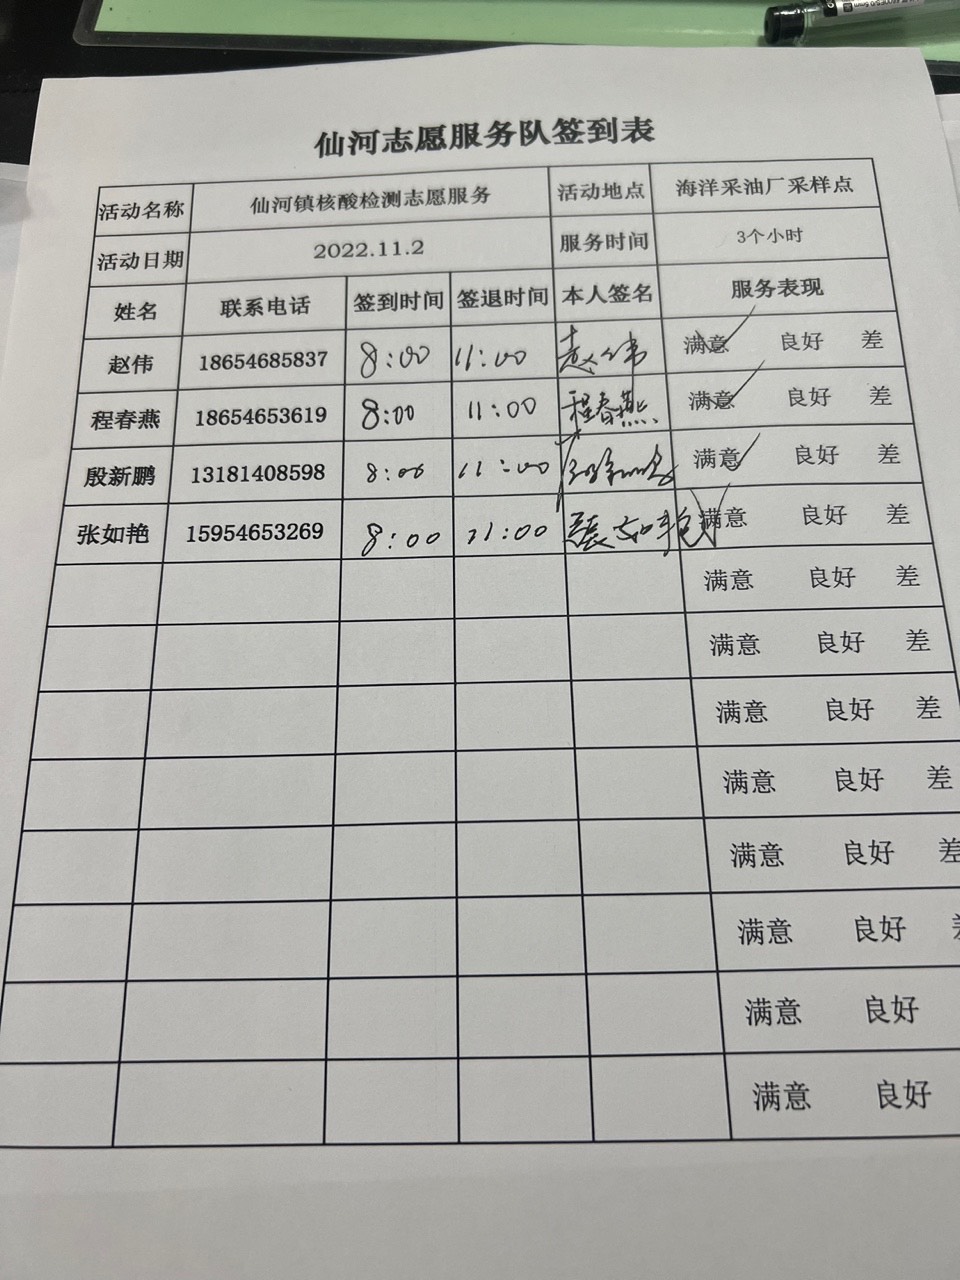 仙河志愿服务队签到表
活动名称 仙河镇核酸检测志愿服务 活动地点 海洋采油厂采样点
活动日期 2022.11.2 服务时间 3个小时
姓名 联系电话 签到时间 签退时间 本人签名 服务表现
赵伟 18654685837 8:00 11:00 赵伟 满意 良好 差
程春燕 18654653619 8:00 11:00 程春燕 满意 良好 差
殷新鹏 13181408598 8:00 11:00 满意 良好 差
张如艳 15954653269 8:00 11:00 張如艳 满意 良好 差
满意 良好 差
满意 良好 差
满意 良好 差
满意 良好 差
满意 良好 差
满意 良好
满意 良好
满意 良好